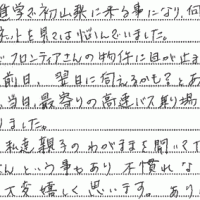 進学で初山梨に来る事になり、何
ネットを見ては悩んでいました。
フロンティアさんの物件に目が止ま
前日、翌日に伺えるかも？とあ
、当日、最寄りの高速バス乗り場
りました。
私達親子のわがままを聞いて
んという事もあり不慣れな
て大変嬉しく思います。あり